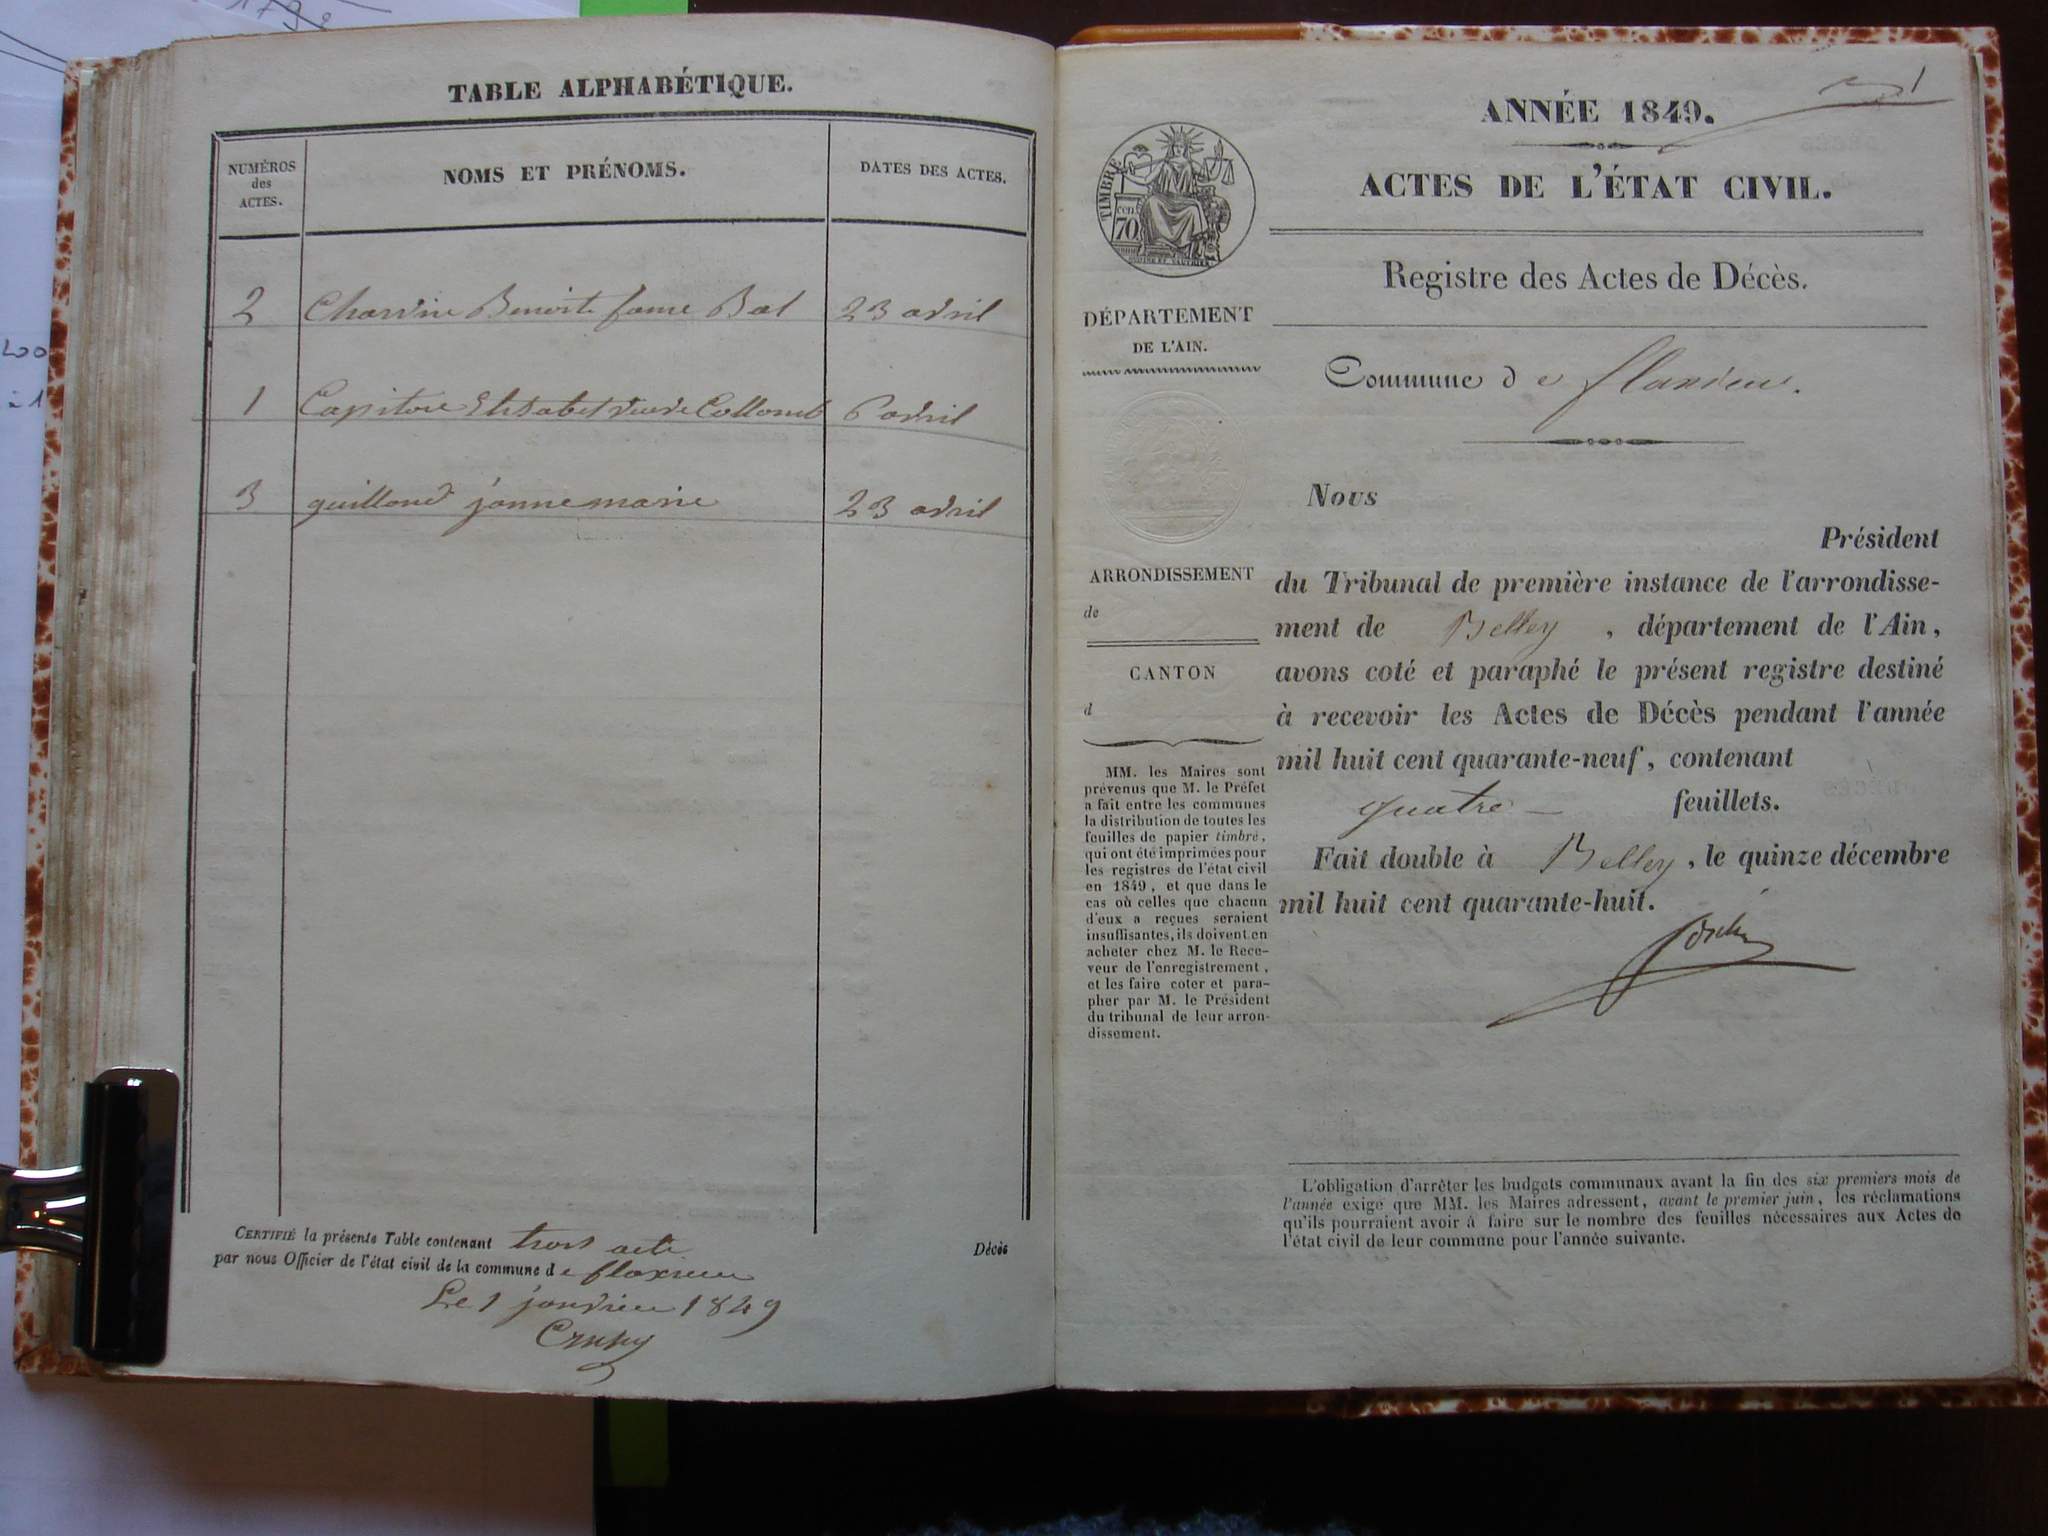 TABLE ALPHABÉTIQUE.
NUMÉROS
des
ACTES.
NOMS ET PRÉNOMS.
DATES DES ACTES.
2 Charvin Benoite fame Bal 23 avril
1 Capitan Elisabet veuve Collomb 6 avril
3 guilloud janne marie 23 avril
CERTIFIÉ la présente Table contenant trois acte
par nous Officier de l'état civil de la commune de flaxieu
Décès
Le 1 janvieu 1849
1
ANNÉE 1849.
ACTES DE L'ÉTAT CIVIL.
Registre des Actes de Décès.
TIMBRE
cen.
70
DÉPARTEMENT
DE L'AIN.
Commune de flaxieu.
Nous
Président
du Tribunal de première instance de l'arrondisse-
ment de Belley, département de l'Ain,
avons coté et paraphé le présent registre destiné
à recevoir les Actes de Décès pendant l'année
mil huit cent quarante-neuf, contenant
quatre feuillets.
Fait double à Belley, le quinze décembre
mil huit cent quarante-huit.
ARRONDISSEMENT
de
CANTON
d
MM. les Maires sont
prévenus que M. le Préfet
a fait entre les communes
la distribution de toutes les
feuilles de papier timbré,
qui ont été imprimées pour
les registres de l'état civil
en 1849, et que dans le
cas où celles que chacun
d'eux a reçues seraient
insuffisantes, ils doivent en
acheter chez M. le Rece-
veur de l'enregistrement,
et les faire coter et para-
pher par M. le Président
du tribunal de leur arron-
dissement.
L'obligation d'arrêter les budgets communaux avant la fin des six premiers mois de
l'année exige que MM. les Maires adressent, avant le premier juin, les réclamations
qu'ils pourraient avoir à faire sur le nombre des feuilles nécessaires aux Actes de
l'état civil de leur commune pour l'année suivante.